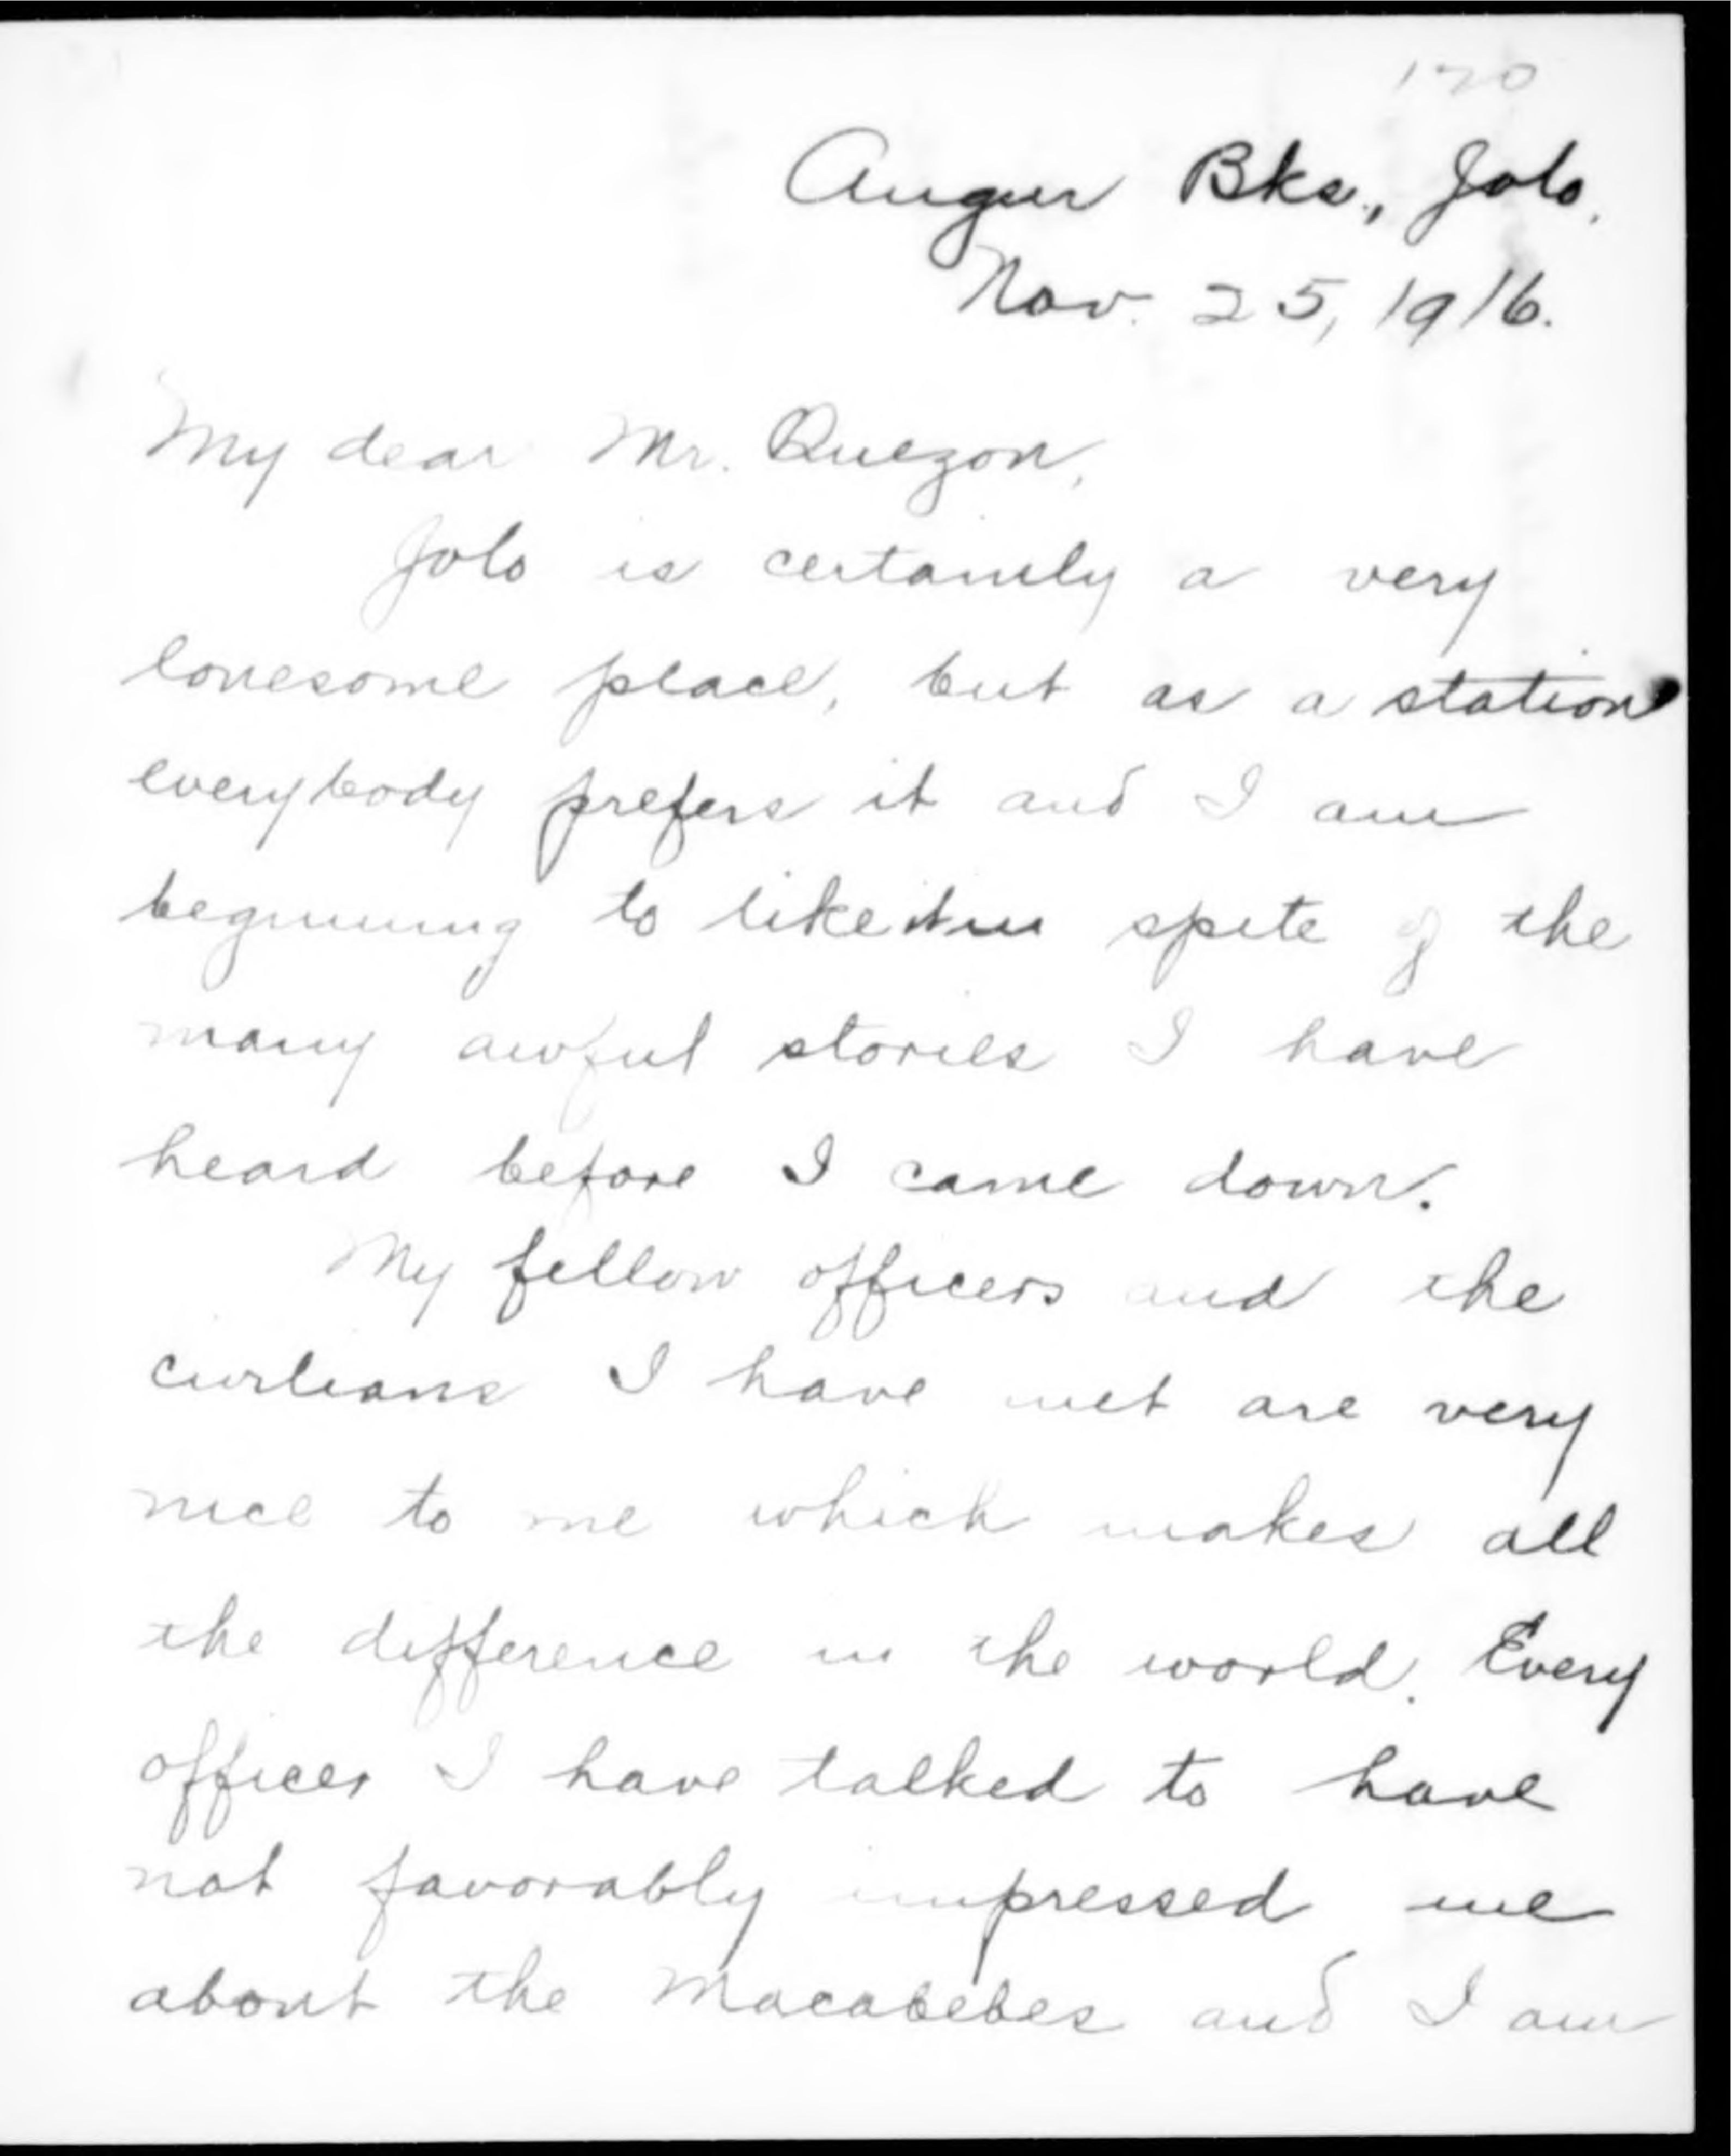 170
Augur Bks., Jolo.
Nov. 25, 1916.
My dear Mr. Quezon,
Jolo is certainly a very
lonesome place, but as a station
everybody prefers it and I am
beginning to like it in spite of the
many awful stories I have
heard before I came down.
My fellow officers and the
civilians I have met are very
nice to me which makes all
the difference in the world. Every
officer I have talked to have
not favorably impressed me
about the Macabebes and I am